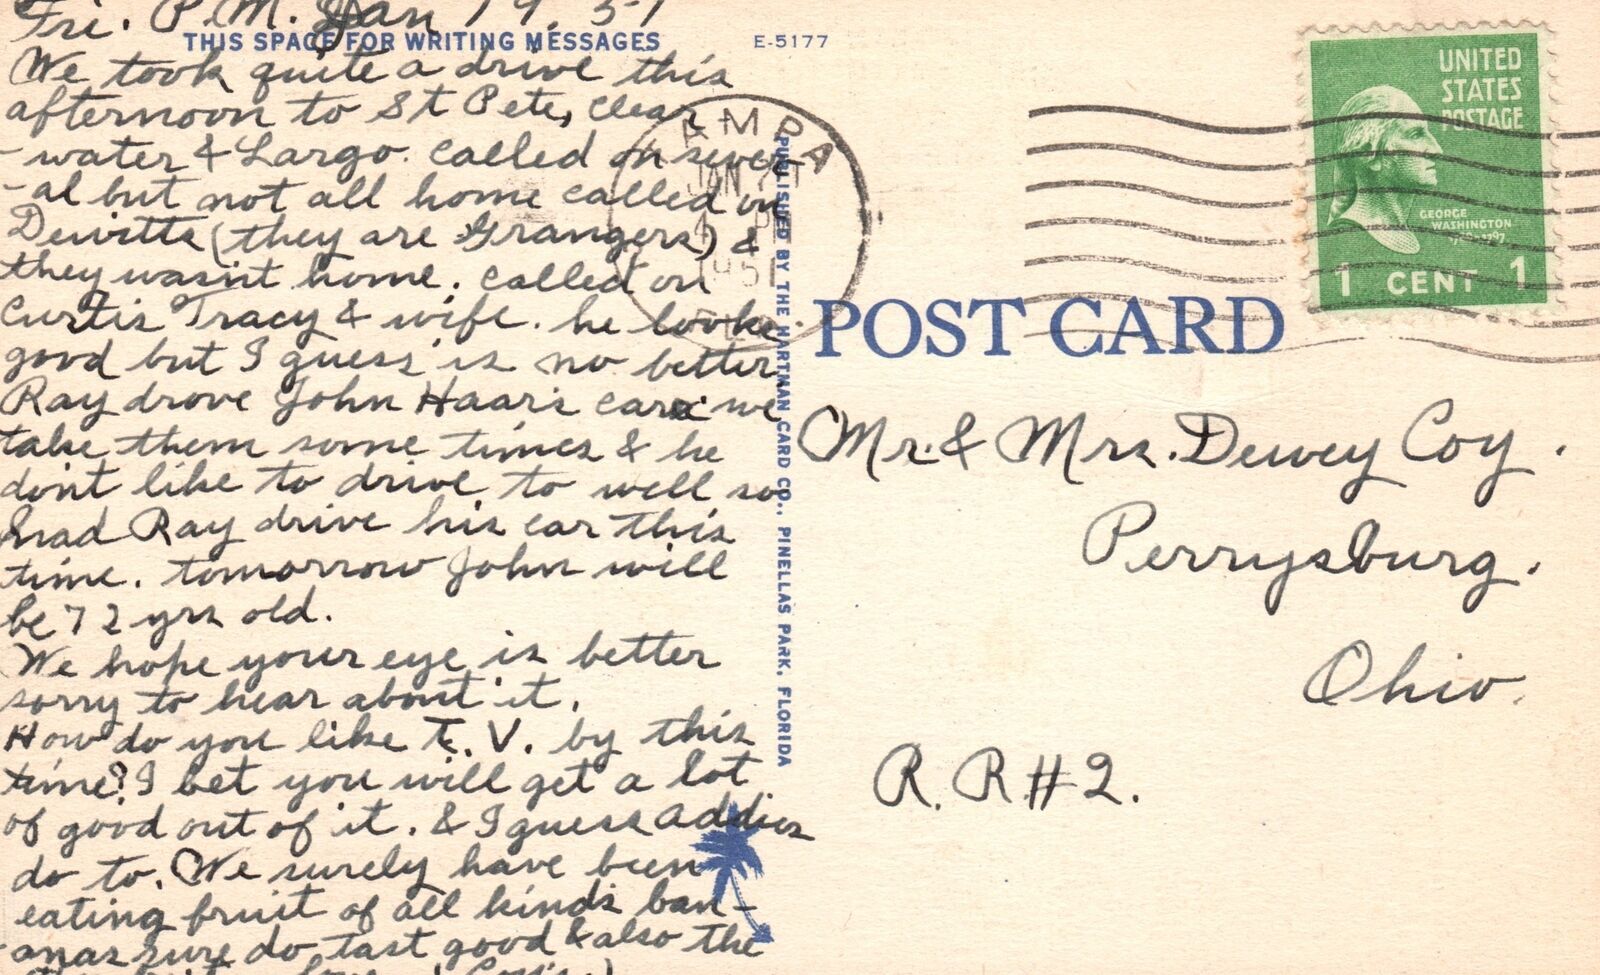 Fri. P.M. Jan 19, 51
THIS SPACE FOR WRITING MESSAGES
E-5177
We took quite a drive this
afternoon to St Pete, Clear
-water & Largo. Called on sever
-al but not all home called on
Dewitts (they are Grangers) &
they wasn't home. Called on
Curtis Tracy & wife. he looks
good but I guess is no better.
Ray drove John Haar's car we
take them some times & he
don't like to drive to well so
had Ray drive his car this
time. tomorrow John will
be 72 yrs old.
We hope your eye is better
sorry to hear about it.
How do you like T.V. by this
time? I bet you will get a lot
of good out of it. & I guess Addies
do to. We surely have been
eating fruit of all kinds ban-
-anas sure do tast good & also the
PUBLISHED BY THE HARTMAN CARD CO., PINELLAS PARK, FLORIDA
TAMPA
JAN
POST CARD
UNITED
STATES
POSTAGE
GEORGE
WASHINGTON
1 CENT 1
Mr. & Mrs. Dewey Coy.
Perrysburg.
Ohio.
R. R #2.